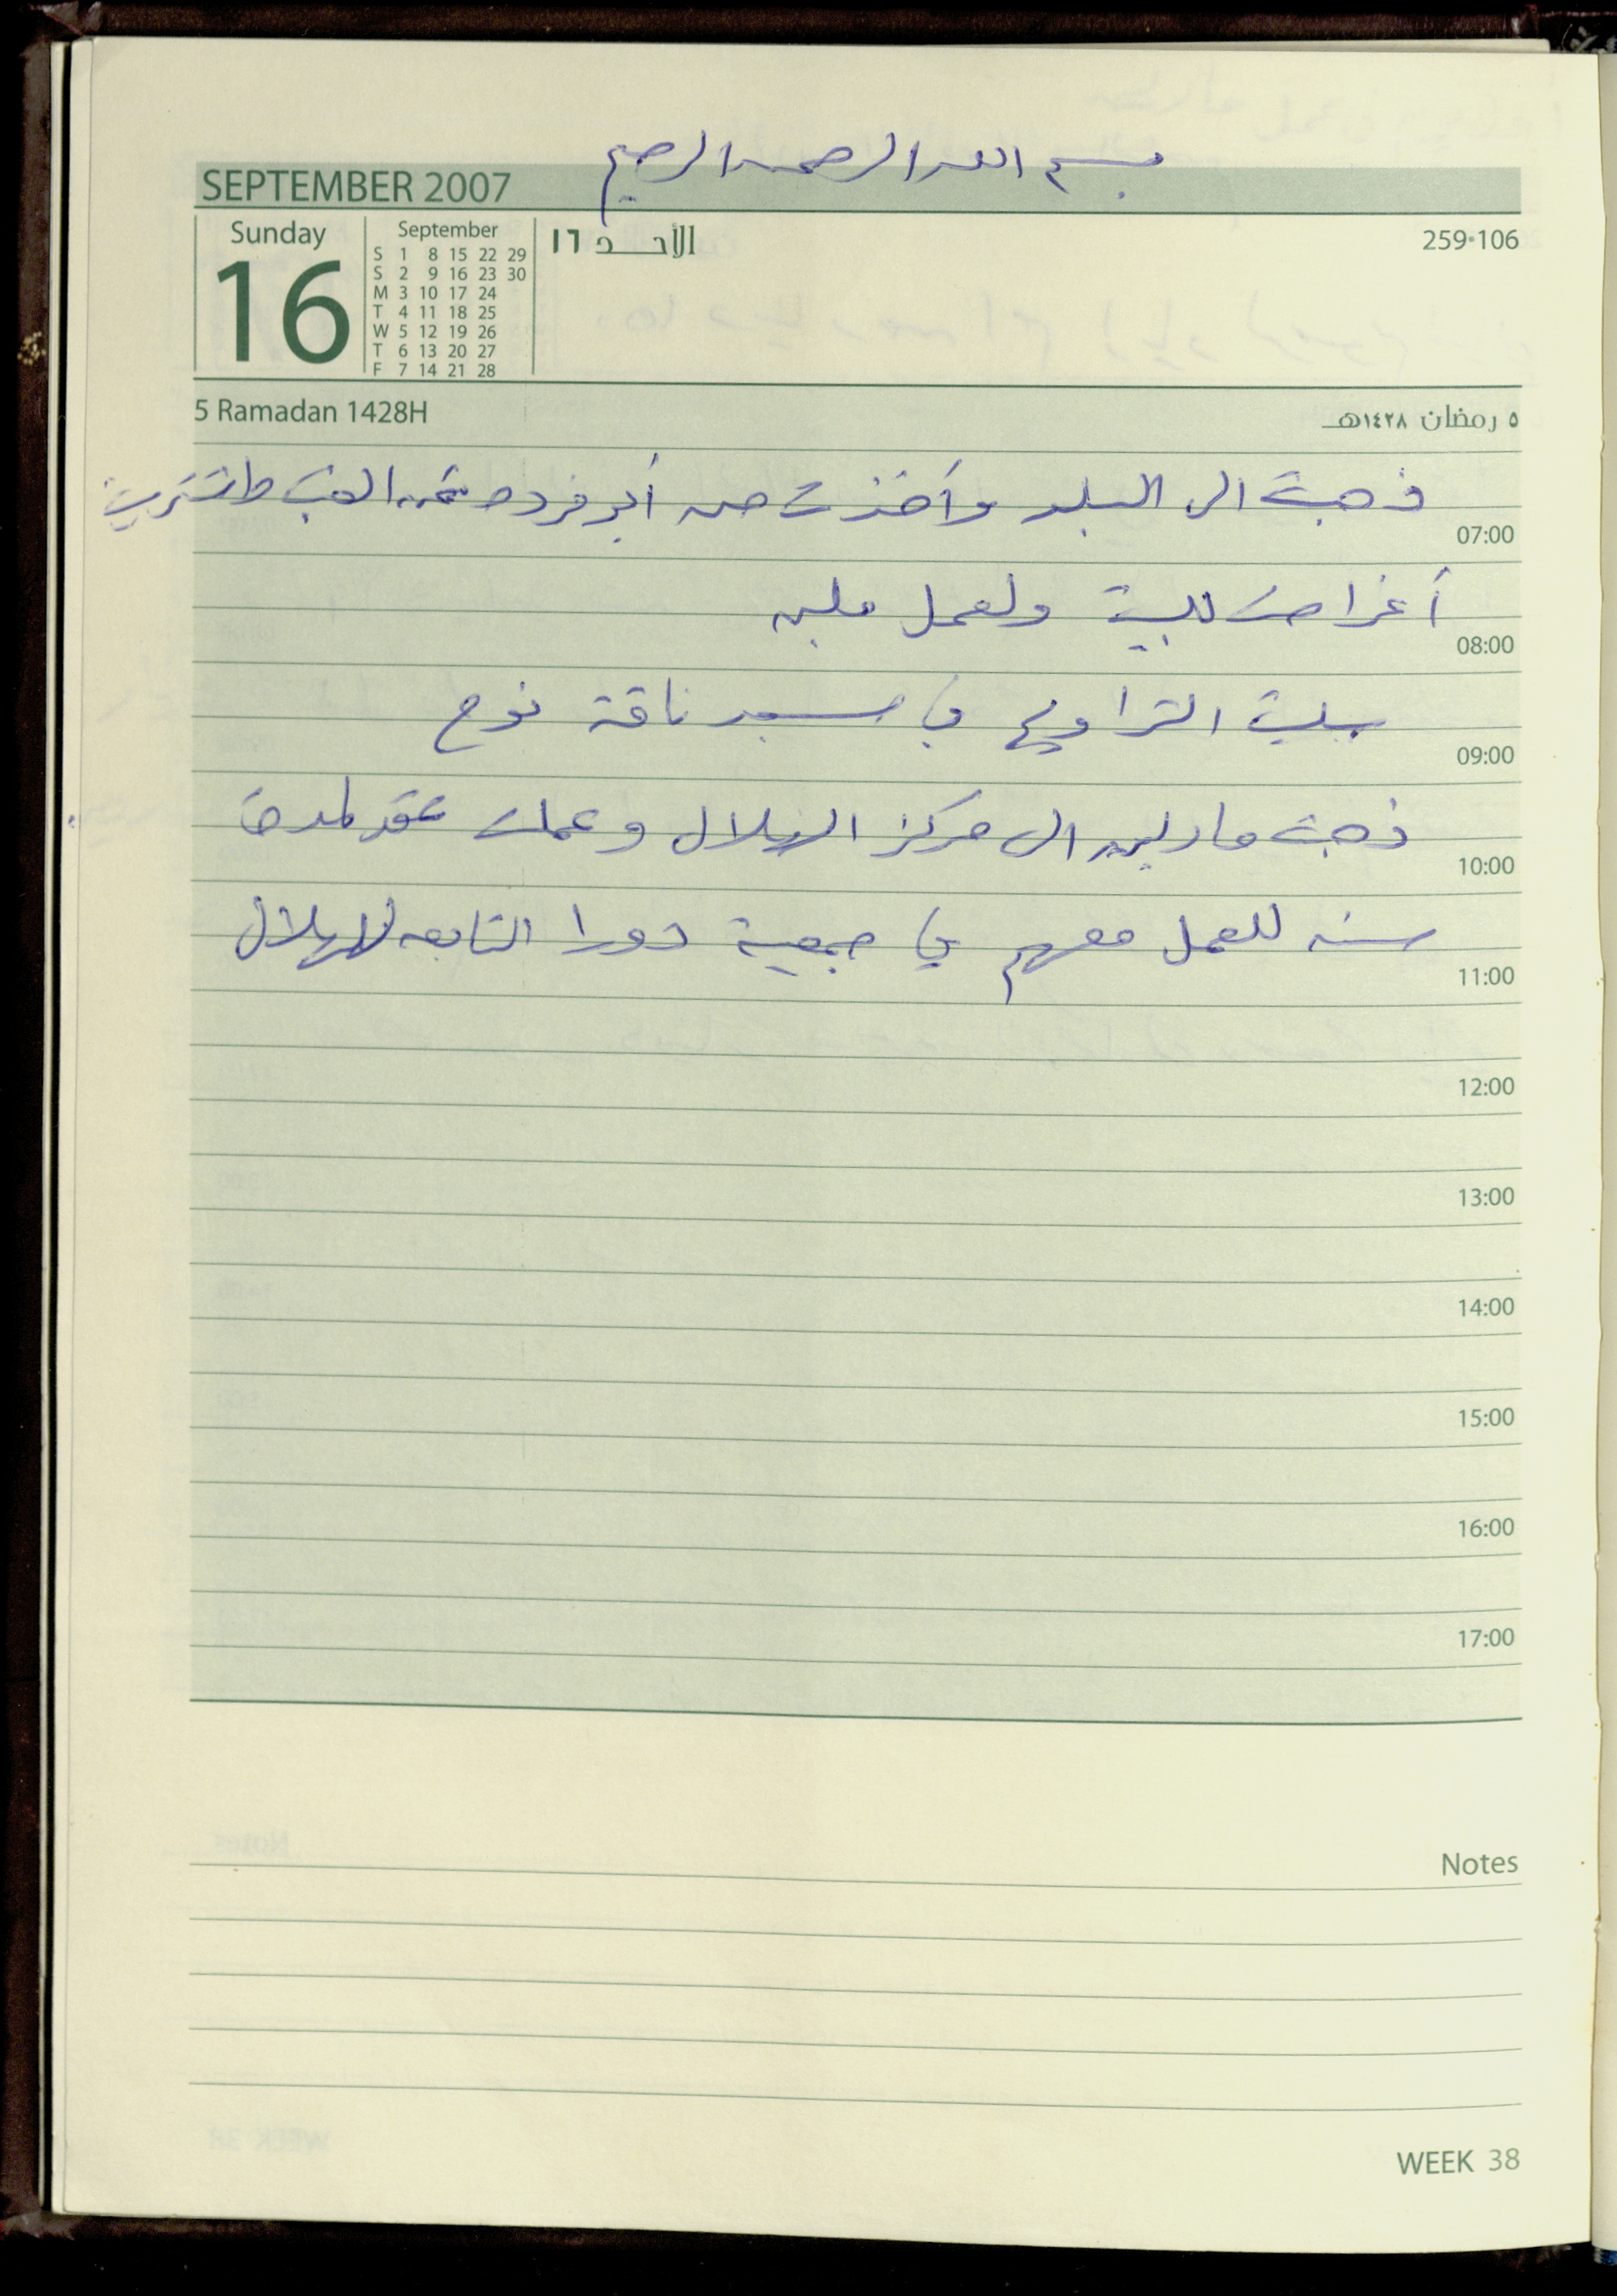 بسم الله الرحمن الرحيم
SEPTEMBER 2007
Sunday
16
September
S 1 8 15 22 29
S 2 9 16 23 30
M 3 10 17 24
T 4 11 18 25
W 5 12 19 26
T 6 13 20 27
F 7 14 21 28
الأحد ١٦
259•106
5 Ramadan 1428H
٥ رمضان ١٤٢٨هـ
ذهبت الى البلد وأخذت من أبو فرده ثمن العنب واشتريت
07:00
أغراض للبيت ولعمل ملبن
08:00
صليت التراويح في مسجد ناقة نوح
09:00
ذهبت مارلين الى مركز الهلال وعملت عقد لمدة
10:00
سنه للعمل معهم في جمعية دورا التابعه للهلال
11:00
12:00
13:00
14:00
15:00
16:00
17:00
Notes
WEEK 38